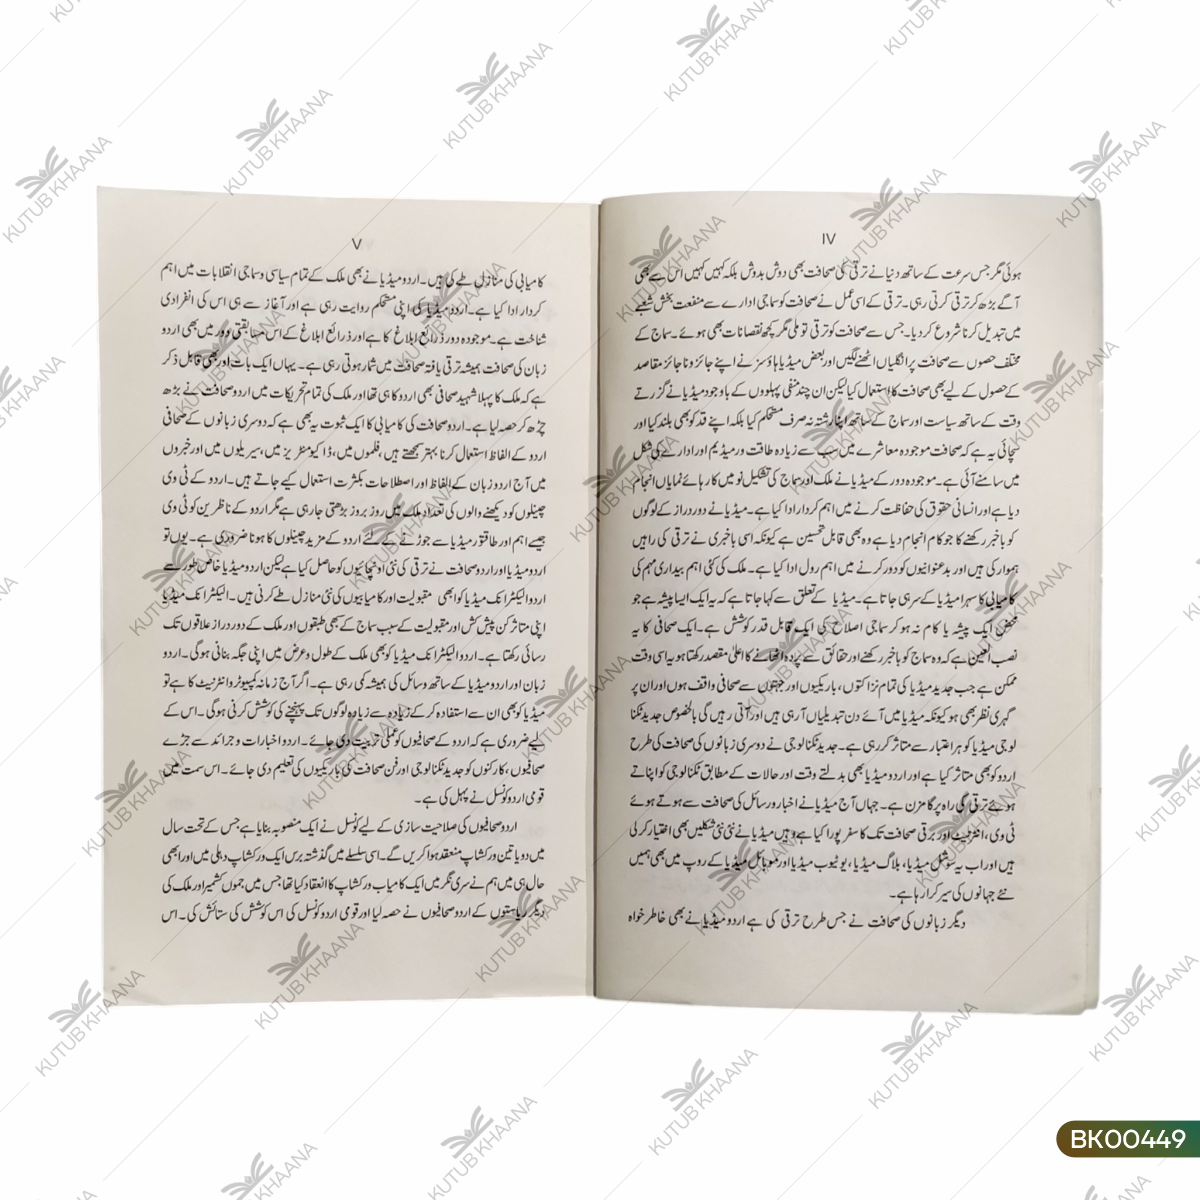 IV
ہوئی مگر جس سرعت کے ساتھ دنیا نے ترقی کی صحافت بھی دوش بدوش بلکہ کہیں کہیں اس سے بھی
آگے بڑھ کر ترقی کرتی رہی۔ ترقی کے اسی عمل نے صحافت کو سماجی ادارے سے منفعت بخش شعبے
میں تبدیل کرنا شروع کر دیا۔ جس سے صحافت کو ترقی تو ملی مگر کچھ نقصانات بھی ہوئے۔ سماج کے
مختلف حصوں سے صحافت پر انگلیاں اٹھنے لگیں اور بعض میڈیا ہاؤسز نے اپنے جائز و ناجائز مقاصد
کے حصول کے لیے بھی صحافت کا استعمال کیا لیکن ان چند منفی پہلووں کے باوجود میڈیا نے گزرتے
وقت کے ساتھ سیاست اور سماج کے ساتھ اپنا رشتہ نہ صرف مستحکم کیا بلکہ اپنے قد کو بھی بلند کیا اور
سچائی یہ ہے کہ صحافت موجودہ معاشرے میں سب سے زیادہ طاقت ور میڈیم اور ادارے کی شکل
میں سامنے آئی ہے۔ موجودہ دور کے میڈیا نے ملک اور سماج کی تشکیل نو میں کارہائے نمایاں انجام
دیا ہے اور انسانی حقوق کی حفاظت کرنے میں اہم کردار ادا کیا ہے۔ میڈیا نے دور دراز کے لوگوں
کو باخبر رکھنے کا جو کام انجام دیا ہے وہ بھی قابل تحسین ہے کیونکہ اسی باخبری نے ترقی کی راہیں
ہموار کی ہیں اور بدعنوانیوں کو دور کرنے میں اہم رول ادا کیا ہے۔ ملک کی کئی اہم بیداری مہم کی
کامیابی کا سہرا میڈیا کے سر ہی جاتا ہے۔ میڈیا کے تعلق سے کہا جاتا ہے کہ یہ ایک ایسا پیشہ ہے جو
محض ایک پیشہ یا کام نہ ہو کر سماجی اصلاح کی ایک قابل قدر کوشش ہے۔ ایک صحافی کا یہ
نصب العین ہے کہ وہ سماج کو باخبر رکھنے اور حقائق سے پردہ اٹھانے کا اعلیٰ مقصد رکھتا ہو یہ اسی وقت
ممکن ہے جب جدید میڈیا کی تمام نزاکتوں، باریکیوں اور جہتوں سے صحافی واقف ہوں اور ان پر
گہری نظر بھی ہو کیونکہ میڈیا میں آئے دن تبدیلیاں آ رہی ہیں اور آتی رہیں گی بالخصوص جدید ٹکنا
لوجی میڈیا کو ہر اعتبار سے متاثر کر رہی ہے۔ جدید ٹکنالوجی نے دوسری زبانوں کی صحافت کی طرح
اردو کو بھی متاثر کیا ہے اور اردو میڈیا بھی بدلتے وقت اور حالات کے مطابق ٹکنالوجی کو اپناتے
ہوئے ترقی کی راہ پر گامزن ہے۔ جہاں آج میڈیا نے اخبار و رسائل کی صحافت سے ہوتے ہوئے
ٹی وی، انٹرنیٹ اور برقی صحافت تک کا سفر پورا کیا ہے وہیں میڈیا نے نئی نئی شکلیں بھی اختیار کر لی
ہیں اور اب یہ سوشل میڈیا، بلاگ میڈیا، یوٹیوب میڈیا اور موبائل میڈیا کے روپ میں بھی ہمیں
نئے جہانوں کی سیر کرا رہا ہے۔
دیگر زبانوں کی صحافت نے جس طرح ترقی کی ہے اردو میڈیا نے بھی خاطر خواہ
V
کامیابی کی منازل طے کی ہیں۔ اردو میڈیا نے بھی ملک کے تمام سیاسی و سماجی انقلابات میں اہم
کردار ادا کیا ہے۔ اردو میڈیا کی اپنی مستحکم روایت رہی ہے اور آغاز سے ہی اس کی انفرادی
شناخت ہے۔ موجودہ دور ذرائع ابلاغ کا ہے اور ذرائع ابلاغ کے اس مسابقتی دور میں بھی اردو
زبان کی صحافت ہمیشہ ترقی یافتہ صحافت میں شمار ہوتی رہی ہے۔ یہاں ایک بات اور بھی قابل ذکر
ہے کہ ملک کا پہلا شہید صحافی بھی اردو کا ہی تھا اور ملک کی تمام تحریکات میں اردو صحافت نے بڑھ
چڑھ کر حصہ لیا ہے۔ اردو صحافت کی کامیابی کا ایک ثبوت یہ بھی ہے کہ دوسری زبانوں کے صحافی
اردو کے الفاظ استعمال کرنا بہتر سمجھتے ہیں، فلموں میں، ڈاکیومنٹریز میں، سیریلوں میں اور خبروں
میں آج اردو زبان کے الفاظ اور اصطلاحات بکثرت استعمال کیے جاتے ہیں۔ اردو کے ٹی وی
چینلوں کو دیکھنے والوں کی تعداد ملک میں روز بروز بڑھتی جا رہی ہے مگر اردو کے ناظرین کو ٹی وی
جیسے اہم اور طاقتور میڈیا سے جوڑنے کے لئے اردو کے مزید چینلوں کا ہونا ضروری ہے۔ یوں تو
اردو میڈیا اور اردو صحافت نے ترقی کی نئی اونچائیوں کو حاصل کیا ہے لیکن اردو میڈیا خاص طور سے
اردو الیکٹرانک میڈیا کو ابھی مقبولیت اور کامیابیوں کی نئی منازل طے کرنی ہیں۔ الیکٹرانک میڈیا
اپنی متاثر کن پیش کش اور مقبولیت کے سبب سماج کے بھی طبقوں اور ملک کے دور دراز علاقوں تک
رسائی رکھتا ہے۔ اردو الیکٹرانک میڈیا کو بھی ملک کے طول و عرض میں اپنی جگہ بنانی ہوگی۔ اردو
زبان اور اردو میڈیا کے ساتھ وسائل کی ہمیشہ کمی رہی ہے۔ اگر آج زمانہ کمپیوٹر و انٹرنیٹ کا ہے تو
میڈیا کو بھی ان سے استفادہ کر کے زیادہ سے زیادہ لوگوں تک پہنچنے کی کوشش کرنی ہوگی۔ اس کے
لیے ضروری ہے کہ اردو کے صحافیوں کو عملی تربیت دی جائے۔ اردو اخبارات و جرائد سے جڑے
صحافیوں، کارکنوں کو جدید ٹکنالوجی اور فن صحافت کی باریکیوں کی تعلیم دی جائے۔ اس سمت میں
قومی اردو کونسل نے پہل کی ہے۔
اردو صحافیوں کی صلاحیت سازی کے لیے کونسل نے ایک منصوبہ بنایا ہے جس کے تحت سال
میں دو یا تین ورکشاپ منعقد ہوا کریں گے۔ اسی سلسلے میں گذشتہ برس ایک ورکشاپ دہلی میں اور ابھی
حال ہی میں ہم نے سری نگر میں ایک کامیاب ورکشاپ کا انعقاد کیا تھا جس میں جموں کشمیر اور ملک کی
دیگر ریاستوں کے اردو صحافیوں نے حصہ لیا اور قومی اردو کونسل کی اس کوشش کی ستائش کی۔ اس
KUTUB KHAANA
BK00449